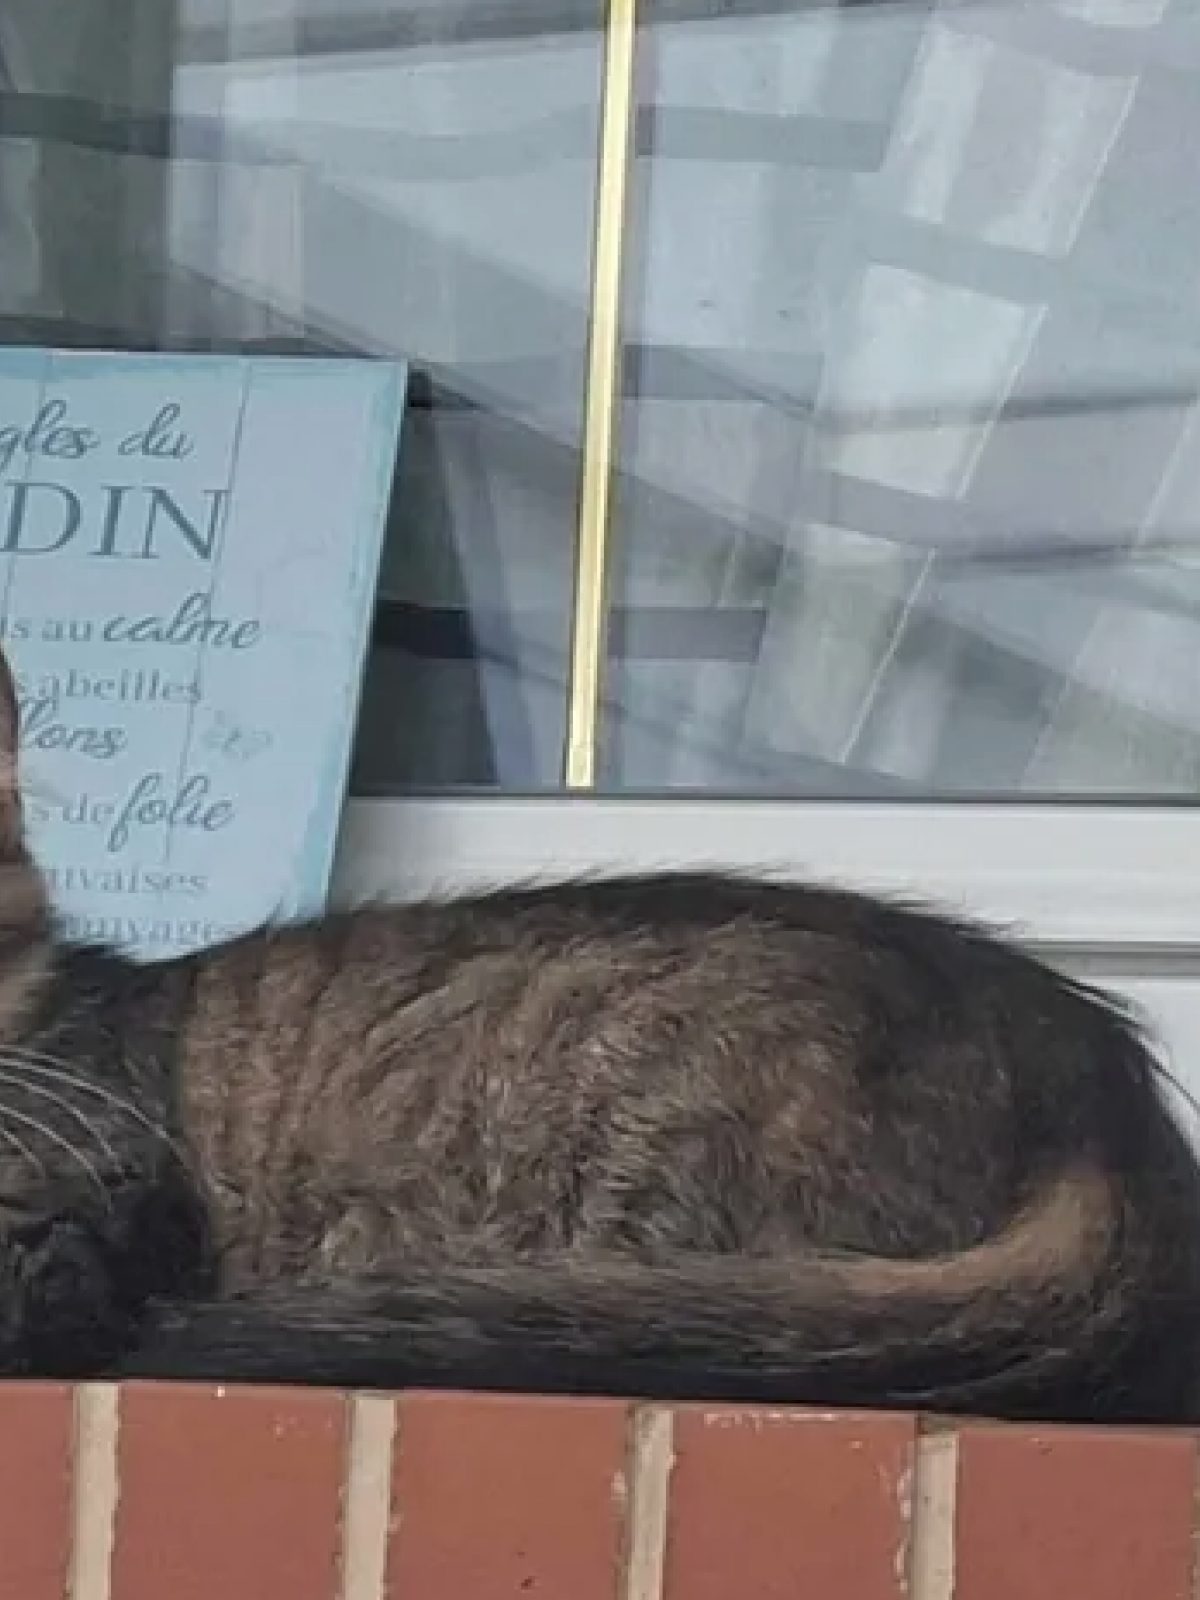 gles du
DIN
is au calme
s abeilles
llons
s de folie
auvaises
auvage